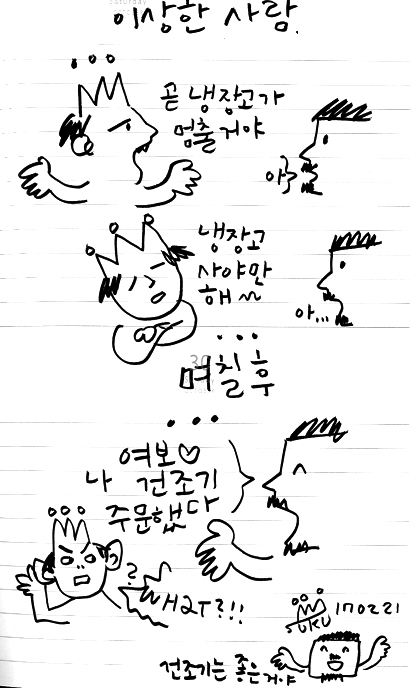 이상한 사람.
곧 냉장고가
멈출거야
아
냉장고
사야만
해~
아...
...
며칠후
...
여보♡
나 건조기
주문했다
?
170221
SUKU
건조기는 좋은거야